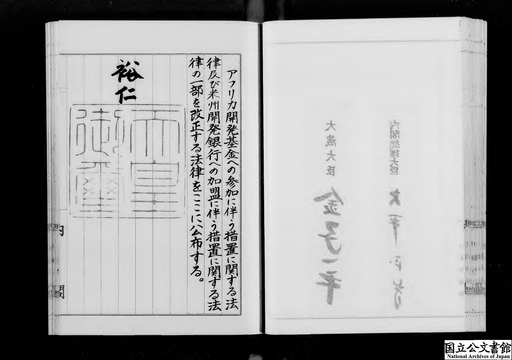 アフリカ開発基金への参加に伴う措置に関する法
律及び米州開発銀行への加盟に伴う措置に関する法
律の一部を改正する法律をここに公布する。
裕仁
天皇
御璽
内閣
内閣総理大臣
大蔵大臣
金子一平
国立公文書館
National Archives of Japan